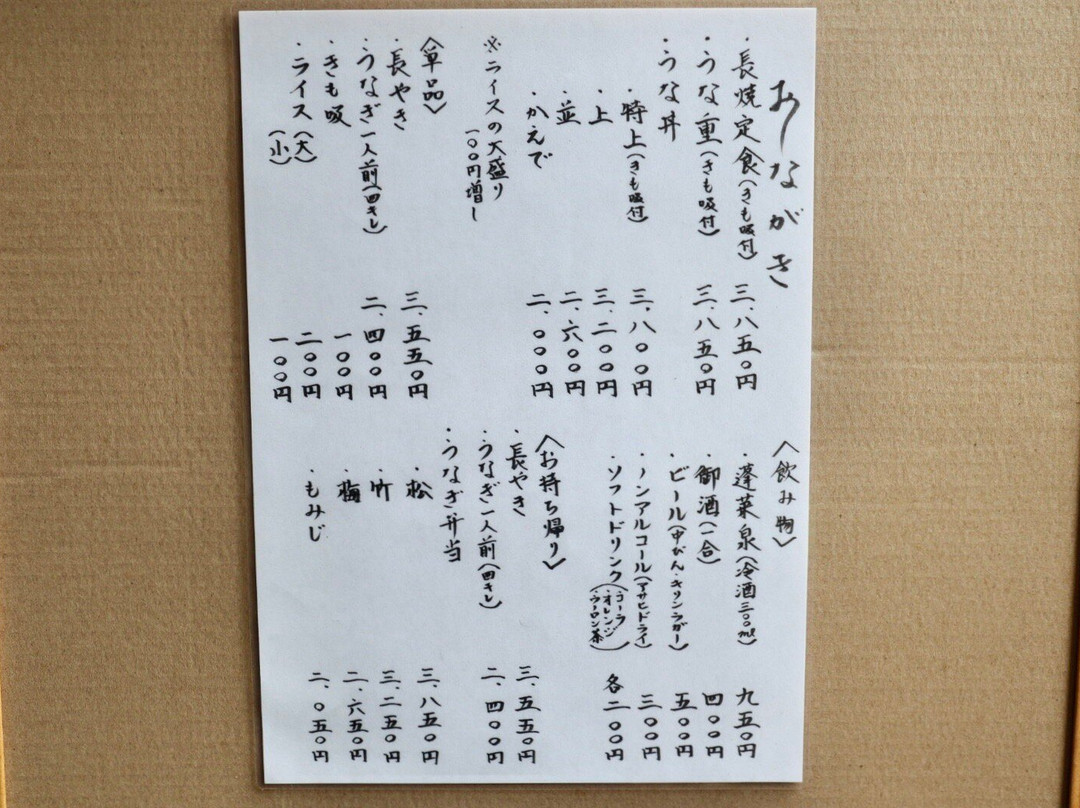 おしながき
・長焼定食(きも吸付) 三、八五〇円
・うな重(きも吸付) 三、八五〇円
・うな丼
・特上(きも吸付) 三、八〇〇円
・上 三、二〇〇円
・並 二、六〇〇円
・かえで 二、〇〇〇円
※ライスの大盛り
一〇〇円増し
〈単品〉
・長やき 三、五五〇円
・うなぎ一人前(四キレ) 二、四〇〇円
・きも吸 一〇〇円
・ライス(大) 二〇〇円
(小) 一〇〇円
〈飲み物〉
・蓬莱泉(冷酒三〇〇ml) 九五〇円
・御酒(一合) 四〇〇円
・ビール(中びん・キリンラガー) 五〇〇円
・ノンアルコール(アサヒドライ) 三〇〇円
・ソフトドリンク(・コーラ・オレンジ・ウーロン茶) 各二〇〇円
〈お持ち帰り〉
・長やき 三、五五〇円
・うなぎ一人前(四キレ) 二、四〇〇円
・うなぎ弁当
・松 三、八五〇円
・竹 三、二五〇円
・梅 二、六五〇円
・もみじ 二、〇五〇円